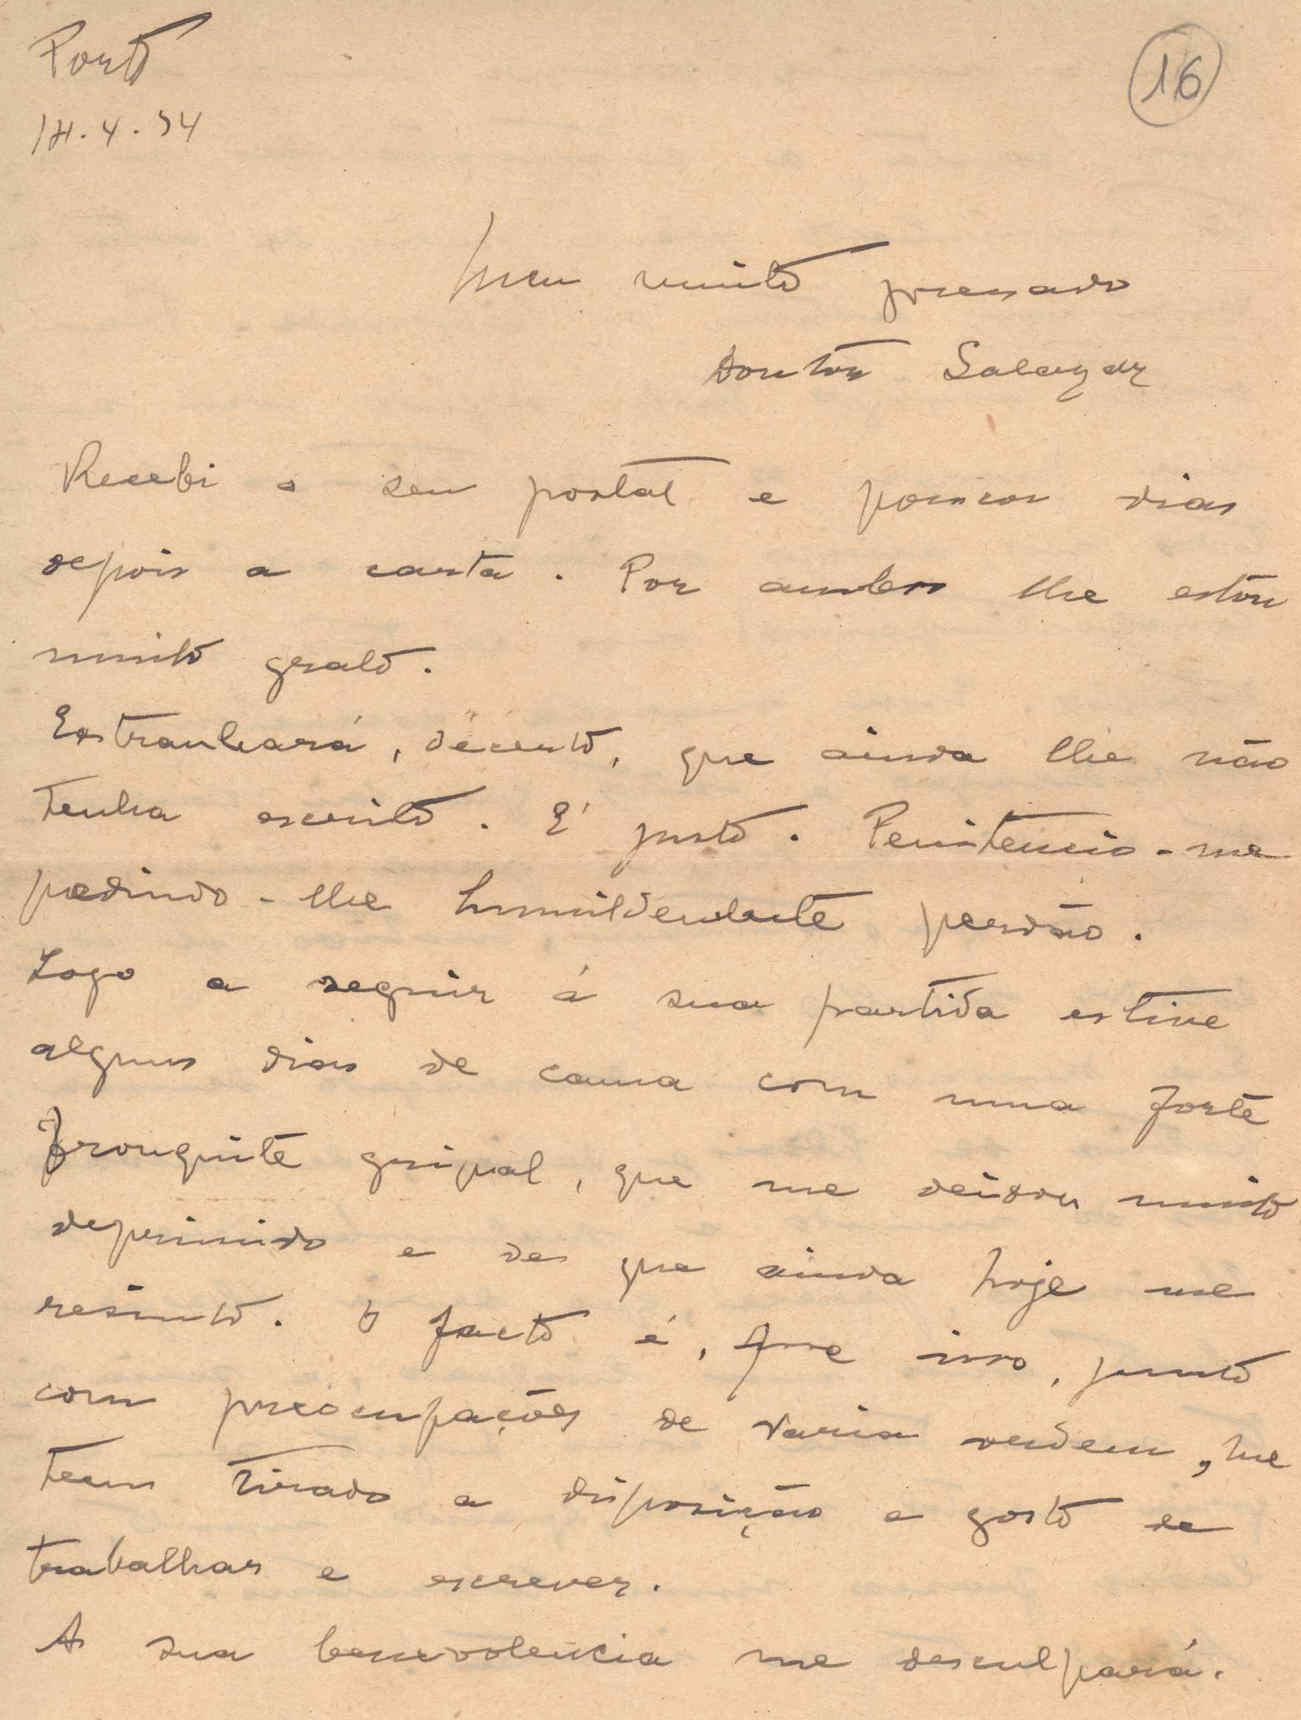 Porto
16
14.4.34
Meu muito presado
Doutor Salazar
Recebi o seu postal e poucos dias
depois a carta. Por ambos lhe estou
muito grato.
Extranhará, decerto, que ainda lhe não
tenha escrito. É justo. Penitencio-me
pedindo-lhe humildemente perdão.
Logo a seguir á sua partida estive
alguns dias de cama com uma forte
bronquite gripal, que me deixou muito
deprimido e de que ainda hoje me
resinto. O facto é, que isso, junto
com preocupações de varia ordem, me
teem tirado a disposição e gosto de
trabalhar e escrever.
A sua benevolencia me desculpará.